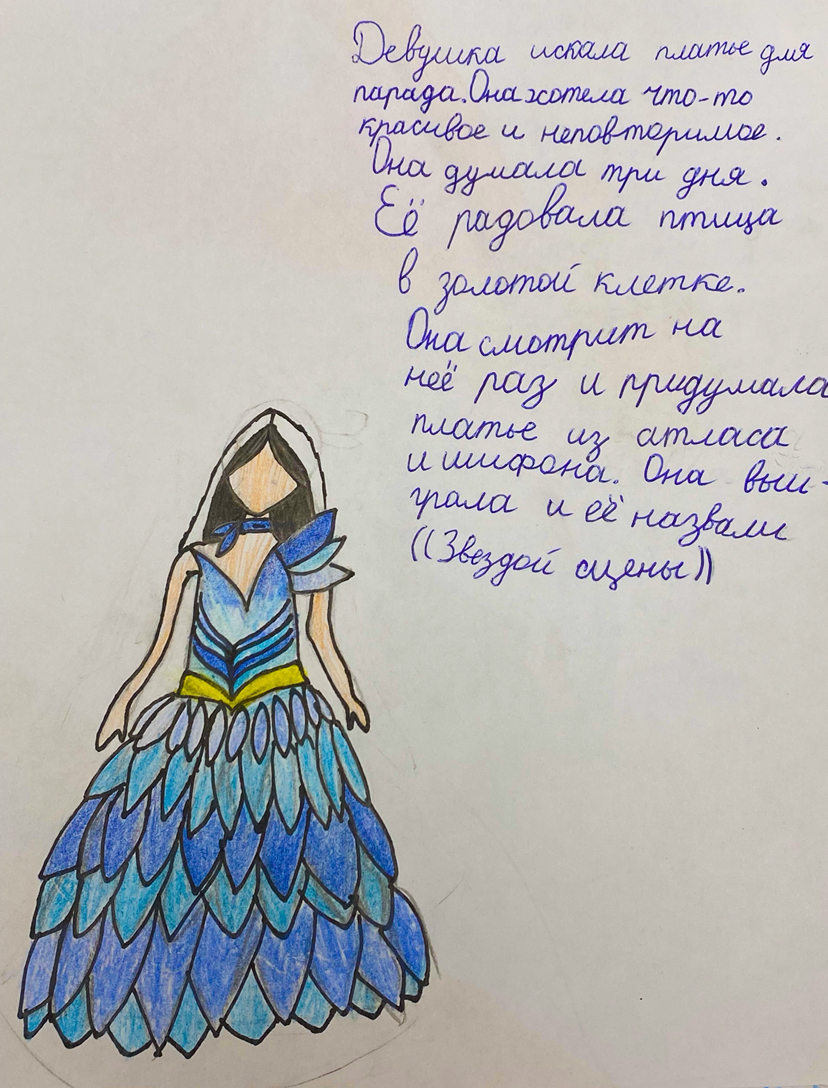 Девушка искала платье для
парада. Она хотела что-то
красивое и неповторимое.
Она думала три дня.
Её радовала птица
в золотой клетке.
Она смотрит на
неё раз и придумала
платье из атласа
и шифона. Она выи-
грала и её назвали
((Звездой сцены))